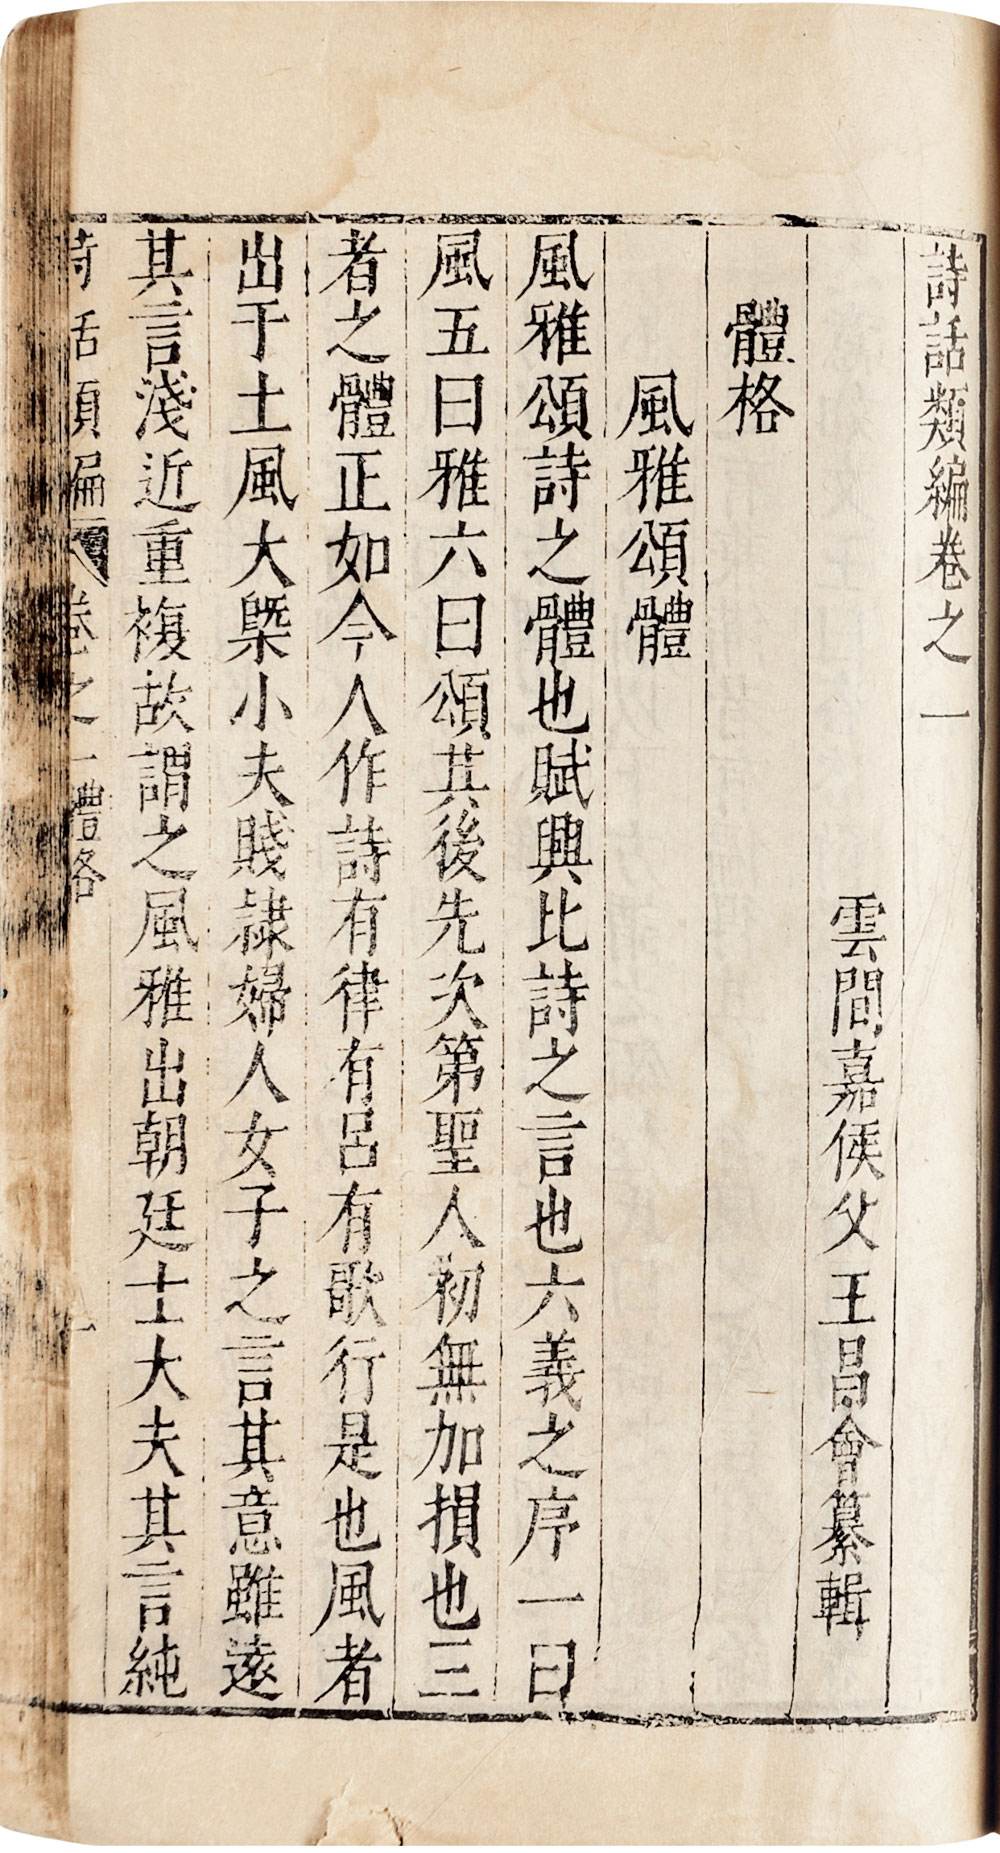 詩話類編卷之一
雲間嘉侯父王昌會纂輯
體格
風雅頌體
風雅頌詩之體也賦興比詩之言也六義之序一曰
風五曰雅六曰頌其後先次第聖人初無加損也三
者之體正如今人作詩有律有呂有歌行是也風者
出于土風大槩小夫賤隷婦人女子之言其意雖遠
其言淺近重複故謂之風雅出朝廷士大夫其言純
詩話類編 卷之一體格 一